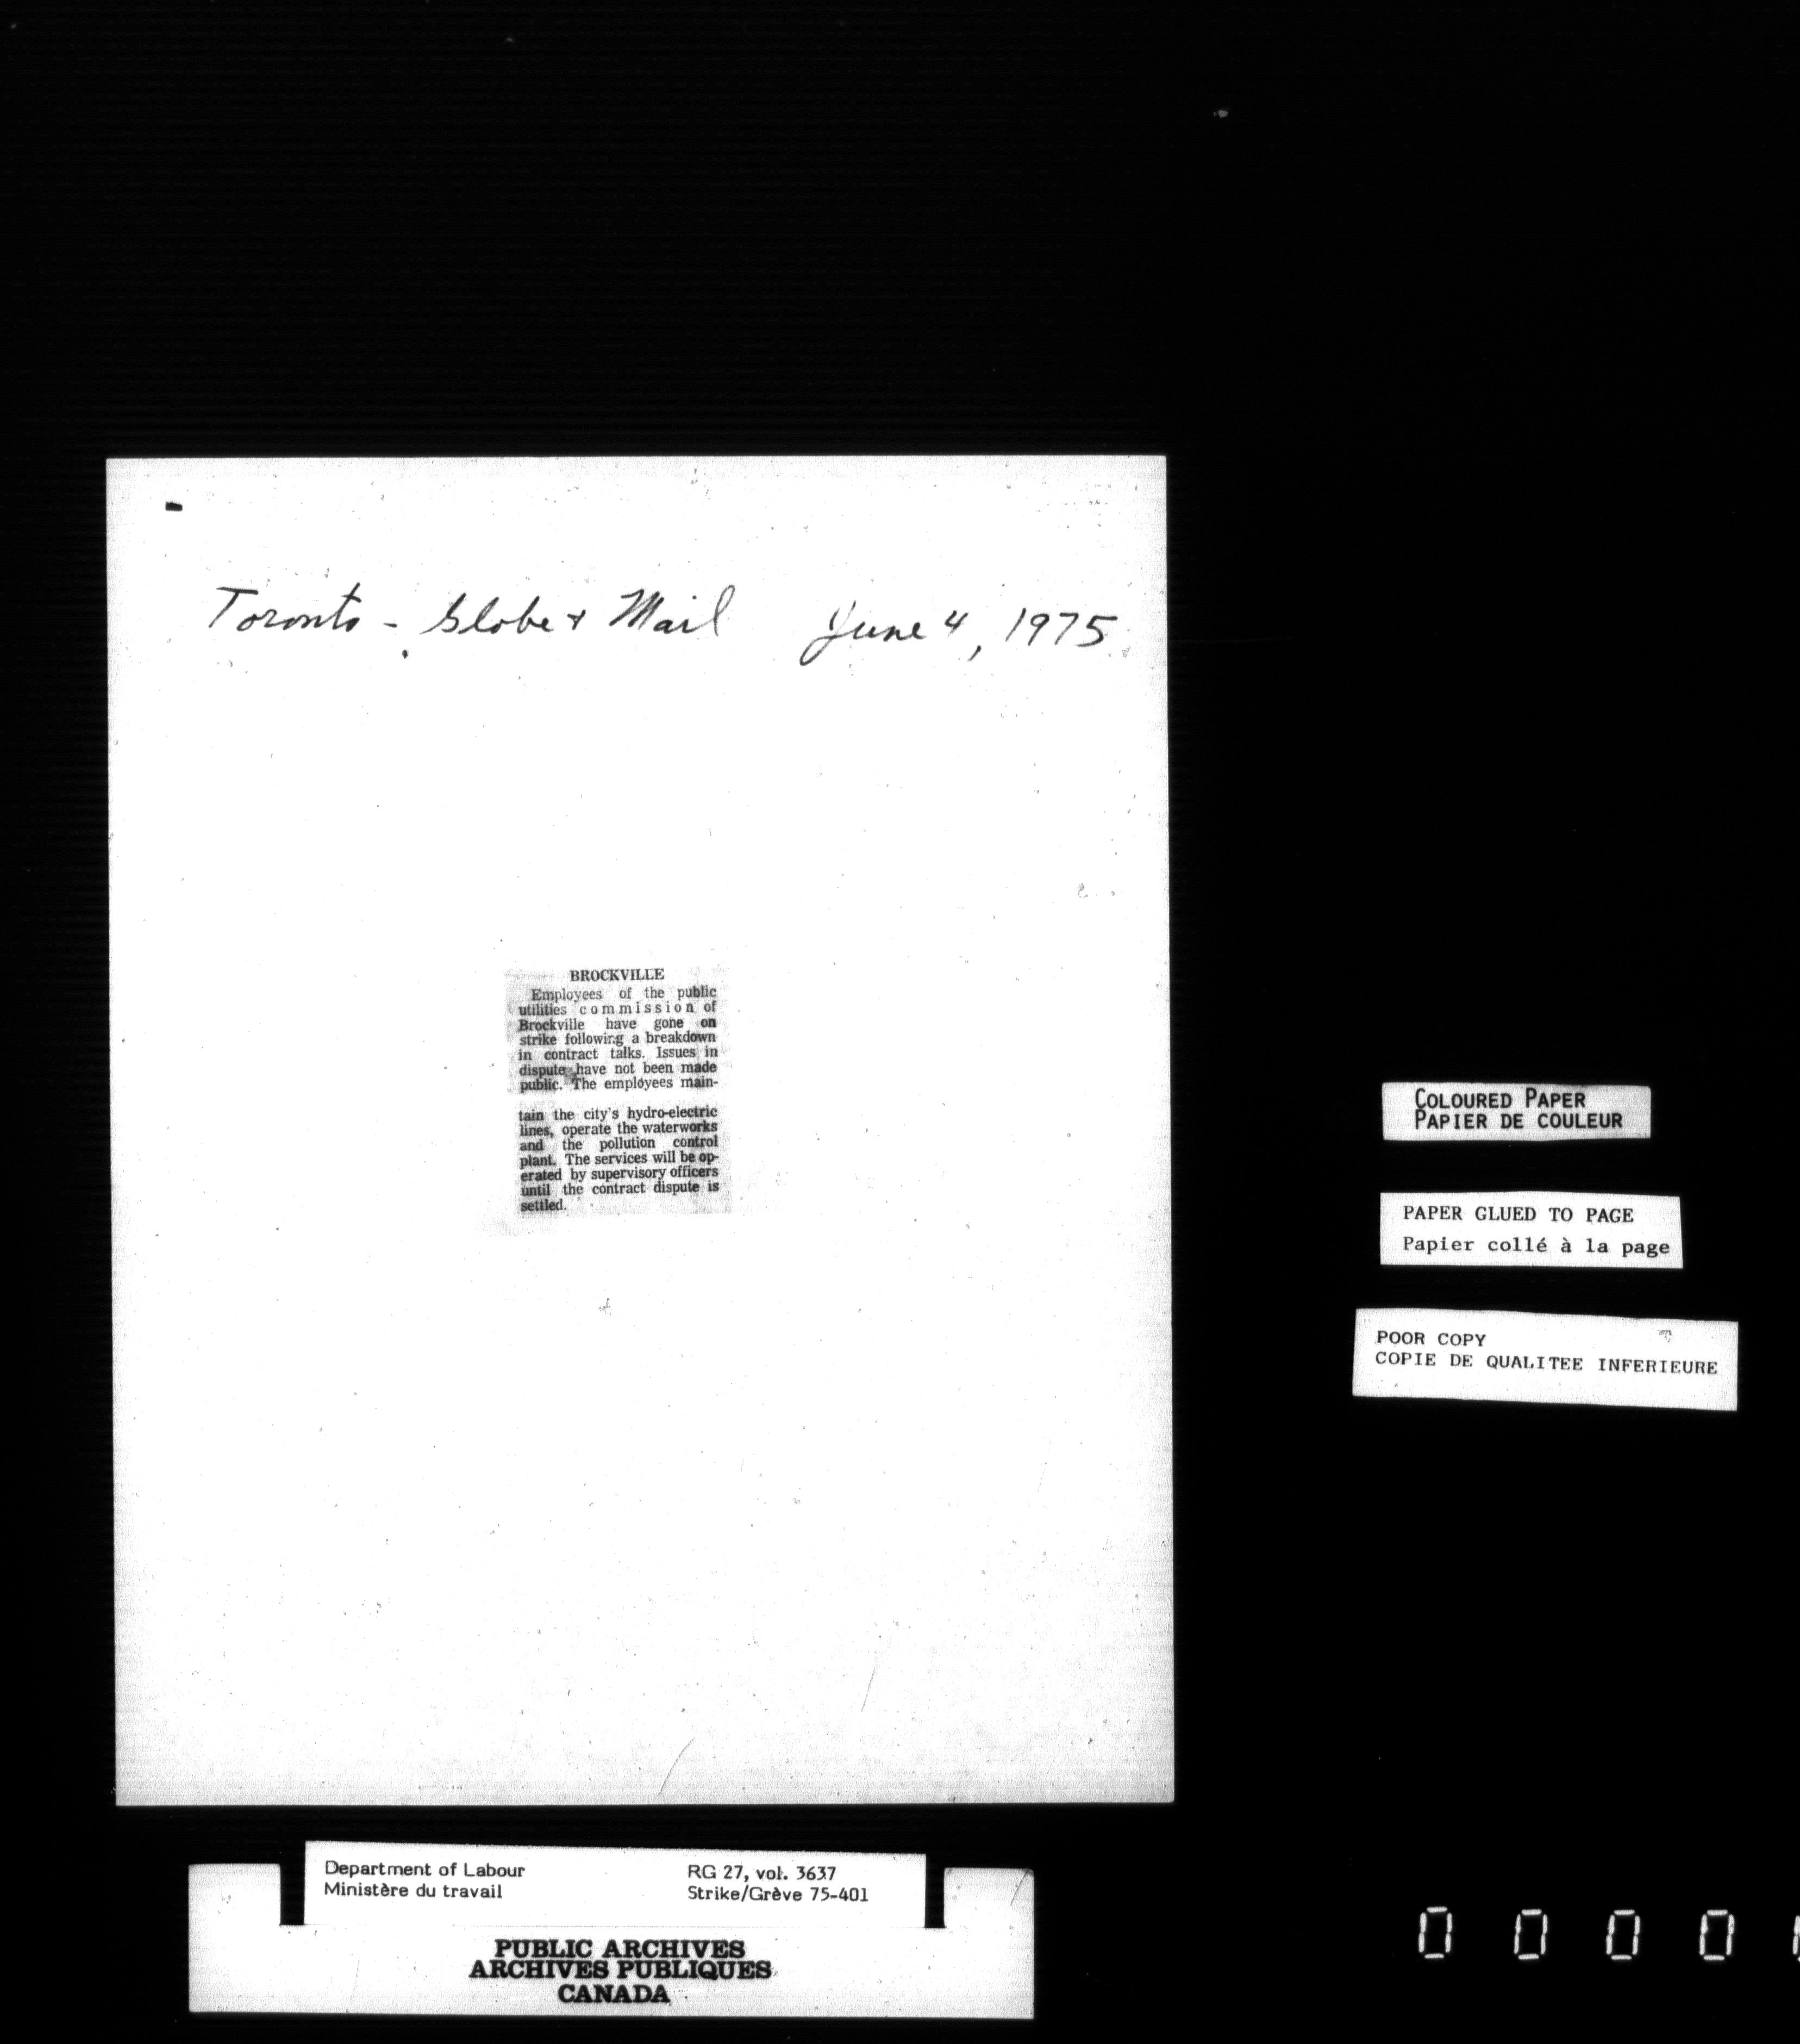 Toronto - Globe & Mail June 4, 1975
BROCKVILLE
Employees of the public
utilities commission of
Brockville have gone on
strike following a breakdown
in contract talks. Issues in
dispute have not been made
public. The employees main-
tain the city's hydro-electric
lines, operate the waterworks
and the pollution control
plant. The services will be op-
erated by supervisory officers
until the contract dispute is
settled.
COLOURED PAPER
PAPIER DE COULEUR
PAPER GLUED TO PAGE
Papier collé à la page
POOR COPY
COPIE DE QUALITEE INFERIEURE
Department of Labour RG 27, vol. 3637
Ministère du travail Strike/Grève 75-401
PUBLIC ARCHIVES
ARCHIVES PUBLIQUES
CANADA
0 0 0 0